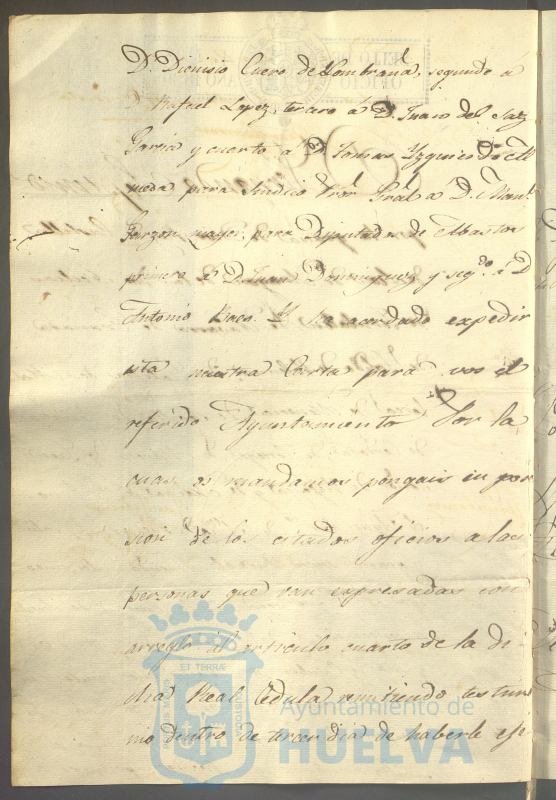 D. Dionisio Cuero de Lombraña, segundo á
Rafael Lopez, tercero á D. Juan del Saz
Garcia y cuarto á D. Tomas Yzquierdo
para Sindico Pror. Gral. á D. Man.l
Garzon mayor, para Diputados de Abastos
primero á D. Juan Dominguez y seg.do á D.
Antonio Y ha acordado expedir
esta nuestra Carta para vos el
referido Ayuntamiento Por la
cual os mandamos pongais en pose
sion de los citados oficios a las
personas que van expresadas con
arreglo al articulo cuarto de la di
cha Real Cedula remitiendo testimo
nio dentro de tercer dia de haberle efe
ET TERRÆ
Ayuntamiento de
HUELVA